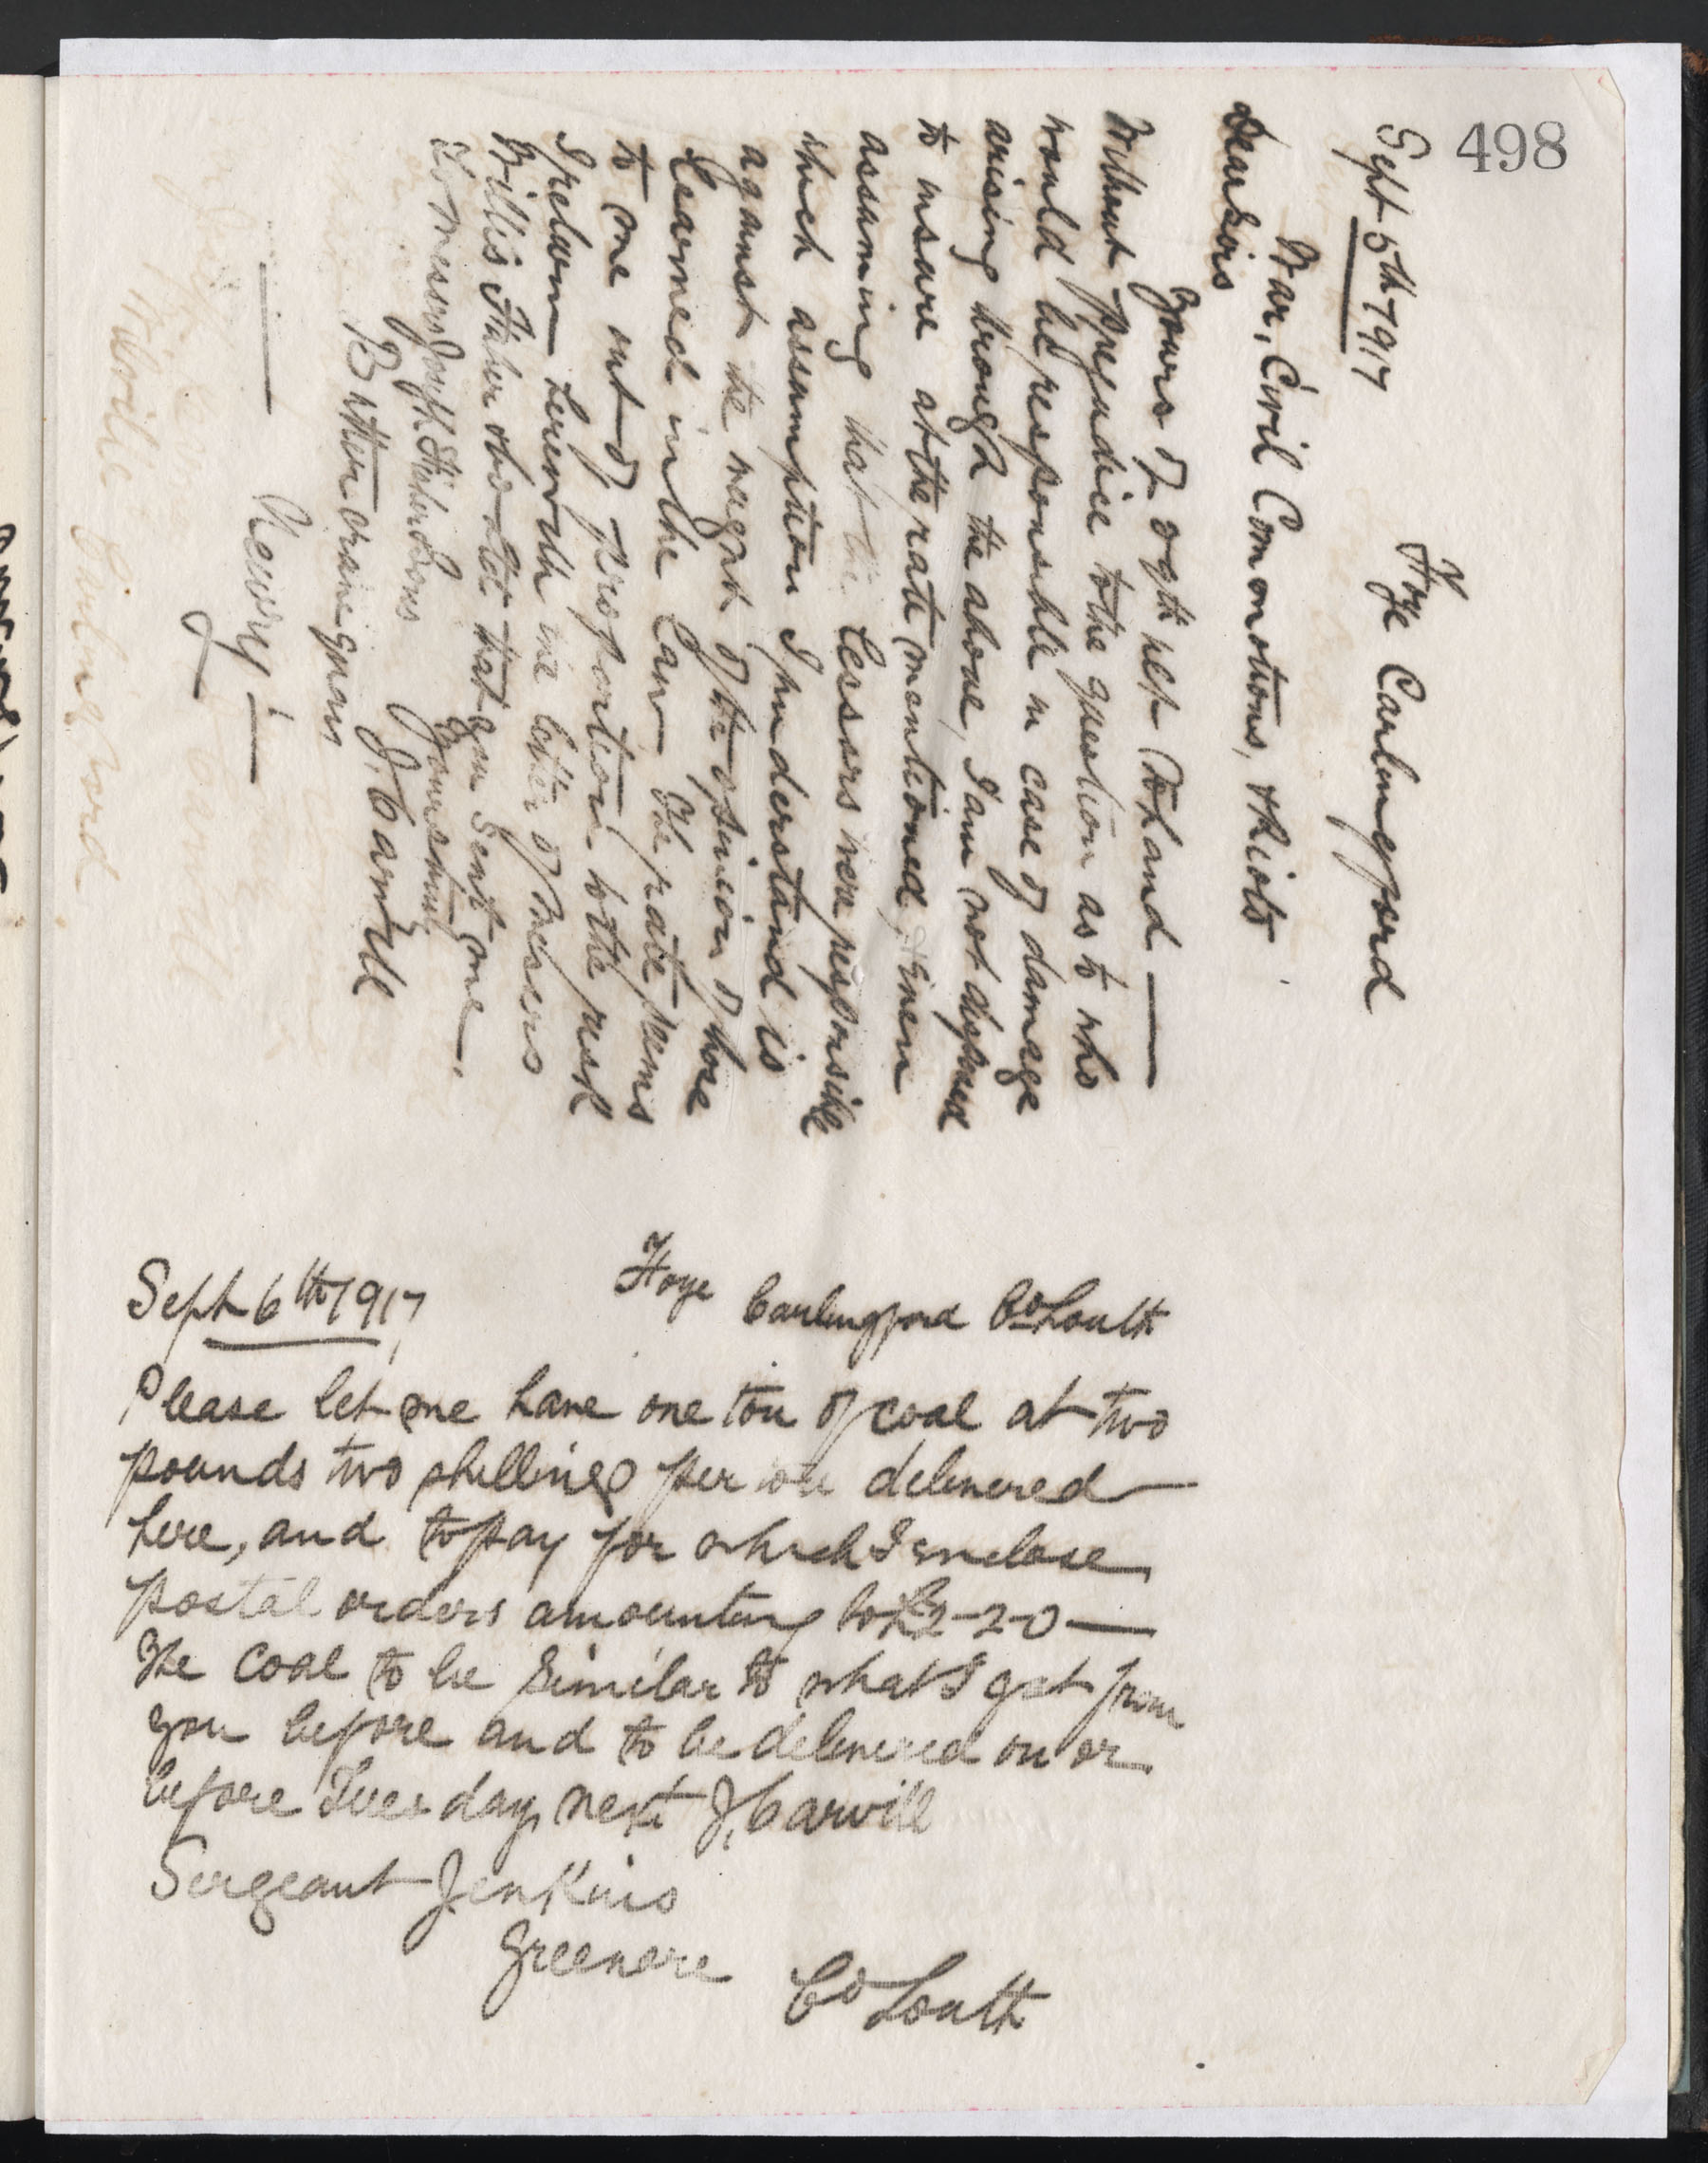 498
Sept 5th 1917
Foye Carlingford
War, Civil Commotions, & Riots
Dear Sirs
Yours of 30th ult to hand —
Without prejudice to the question as to who
would be responsible in case of damage
arising through the above, I am not disposed
to insure at the rate mentioned, & even
assuming that the Lessors were responsible
which assumption I understand is
against the weight of the opinion of those
learned in the law The rate seems
to me out of proportion to the risk
I return herewith the letter of Messrs
Willis Faber & Co that you sent me —
Yours truly
To Messrs Joseph Fisher & Sons
J, Carvill
Buttercrane Quay,
— Newry! —
Sept 6th 1917
Foye Carlingford Co Louth
Please let me have one ton of coal at two
pounds two shillings per ton delivered
here, and to pay for which I enclose
postal orders amounting to £2-2-0 —
The coal to be similar to what I got from
you before and to be delivered on or
before Tuesday next J, Carvill
Sergeant Jenkins
Greenore Co Louth